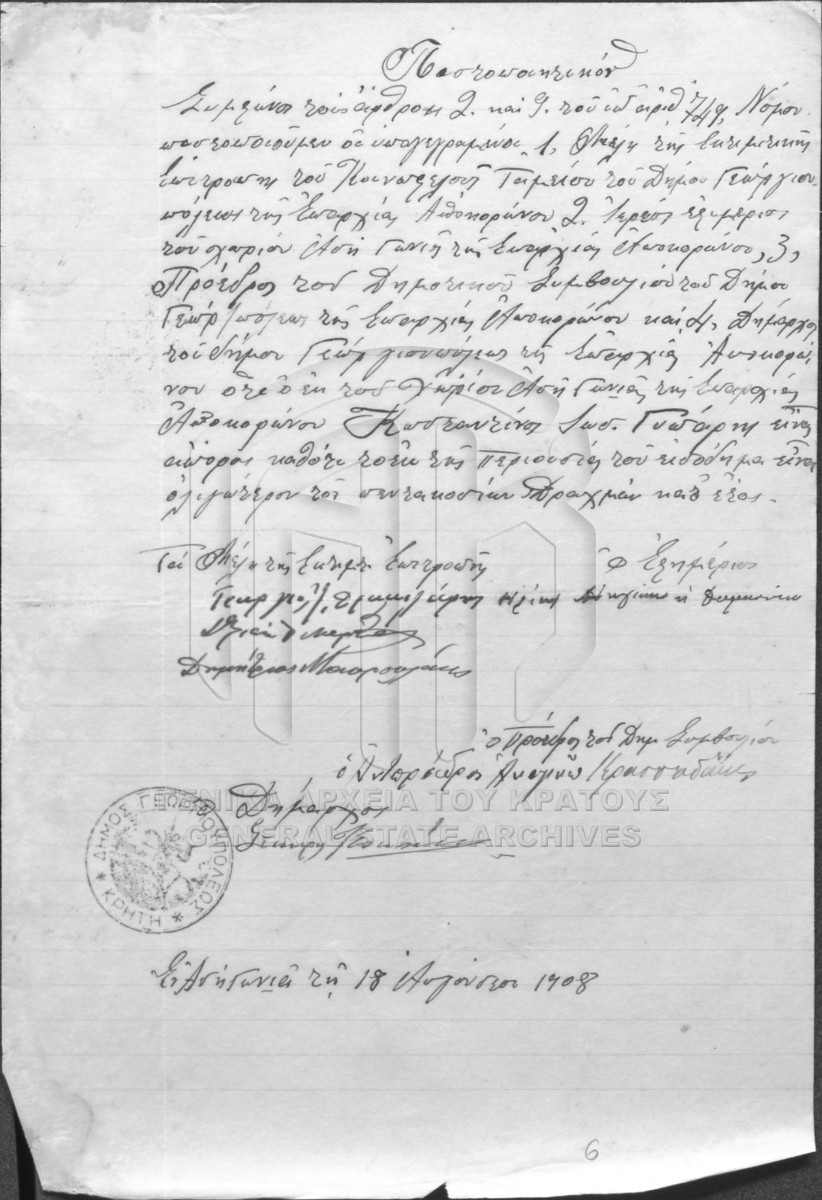 Πιστοποιητικόν
Συμφώνως τοις άρθροις 2. και 9. του υπ αριθ 749 Νόμου
πιστοποιούμεν οι υπογεγραμμένοι 1, Μέλη της Εκτιμητικής
Επιτροπής του Κοινωφελούς Ταμείου του Δήμου Γεωργιου-
πόλεως της Επαρχίας Αποκορώνου 2. Ιερεύς εφημέριος
του χωρίου Ασή Γωνιάς της Επαρχίας Αποκορώνου, 3,
Πρόεδρος του Δημοτικού Συμβουλίου του Δήμου
Γεωργ/πόλεως της Επαρχίας Αποκορώνου και 4, Δήμαρχος
του Δήμου Γεωργιουπόλεως της Επαρχίας Αποκορώ-
νου ότι ο εκ του χωρίου Ασή Γωνιάς της Επαρχίας
Αποκορώνου Κωσταντίνος Ιωσ. Γυπάρης είναι
άπορος καθότι το εκ της περιουσίας του εισόδημα είναι
ολιγώτερον των πεντακοσίων δραχμών κατ' έτος.
Τα Μέλη της Εκτιμ. Επιτροπής Ο Εφημέριος
Γεώργιος
Δημήτριος
ο Πρόεδρος του Δημ Συμβουλίου
ο Αντιπρόεδρος
Ο Δήμαρχος
ΔΗΜΟΣ ΓΕΩΡΓΙΟΥΠΟΛΕΩΣ * ΚΡΗΤΗ *
ΓΕΝΙΚΑ ΑΡΧΕΙΑ ΤΟΥ ΚΡΑΤΟΥΣ
GENERAL STATE ARCHIVES
Εν Ασή Γωνιά τη 18 Αυγούστου 1908
6